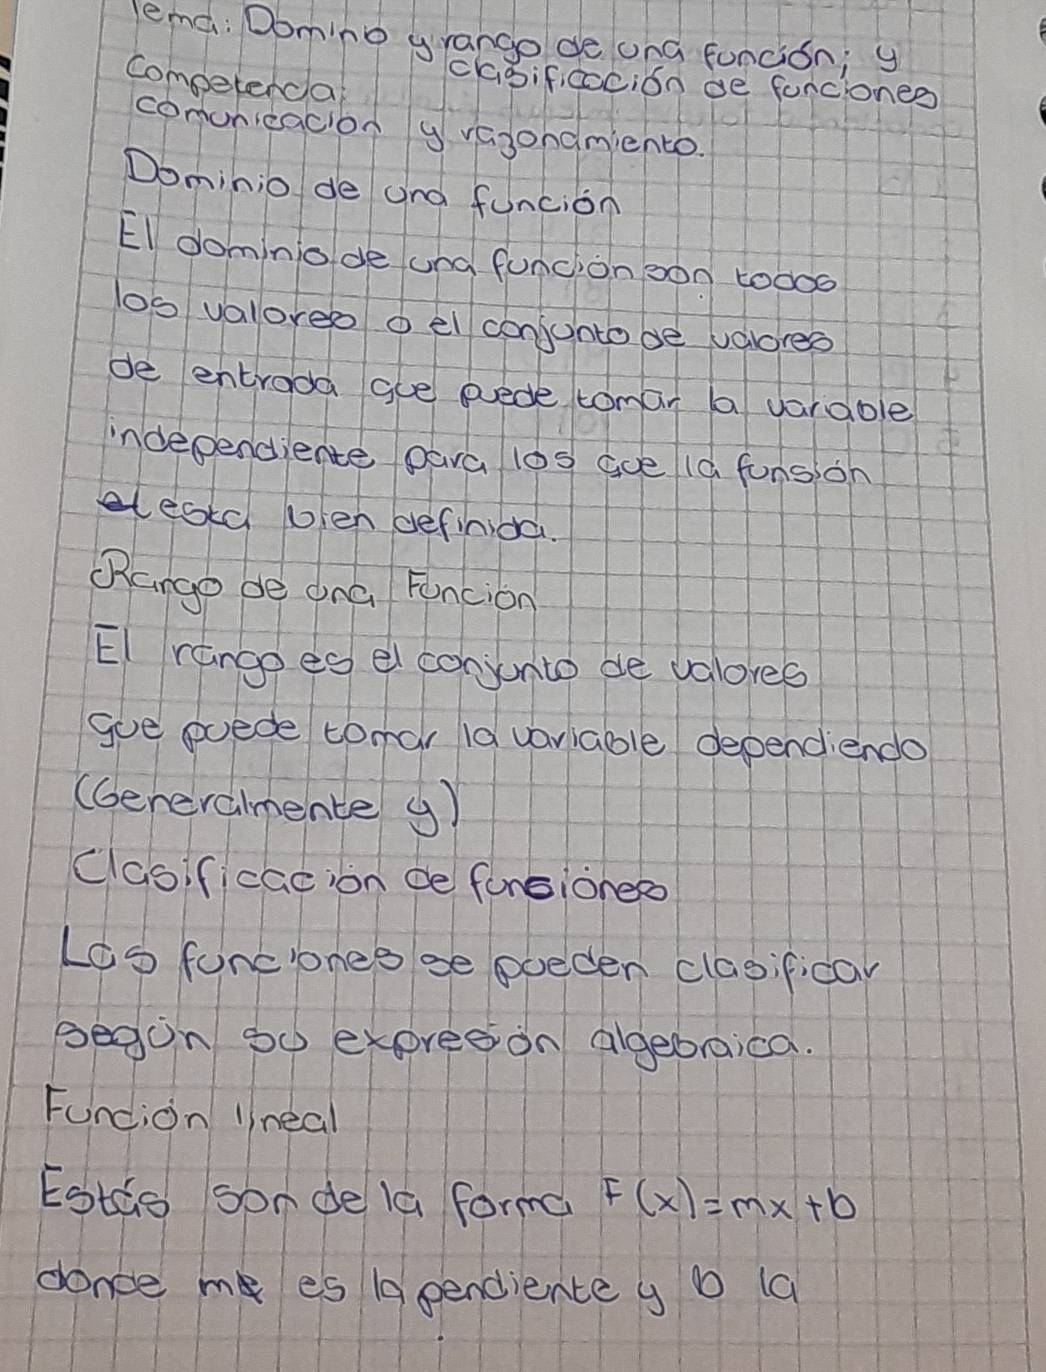 Tema: Dominio y rango de una función; y
clasificación de funciones
Competencia:
comunicacion y razonamiento.
Dominio de una función
El dominio de una función son todos
los valores o el conjunto de valores
de entrada que puede tomar la varable
independiente para los que la funsión
esta bien definida.
Rango de una Función
El rango es el conjunto de valores
que puede tomar la variable dependiendo
(Generalmente y)
Clasificación de funsiónes
Las funciones se pueden clasificar
según su expresión algebraica.
Función lineal
Estás son de la forma F(x)=mx+b
donde m es la pendiente y b la